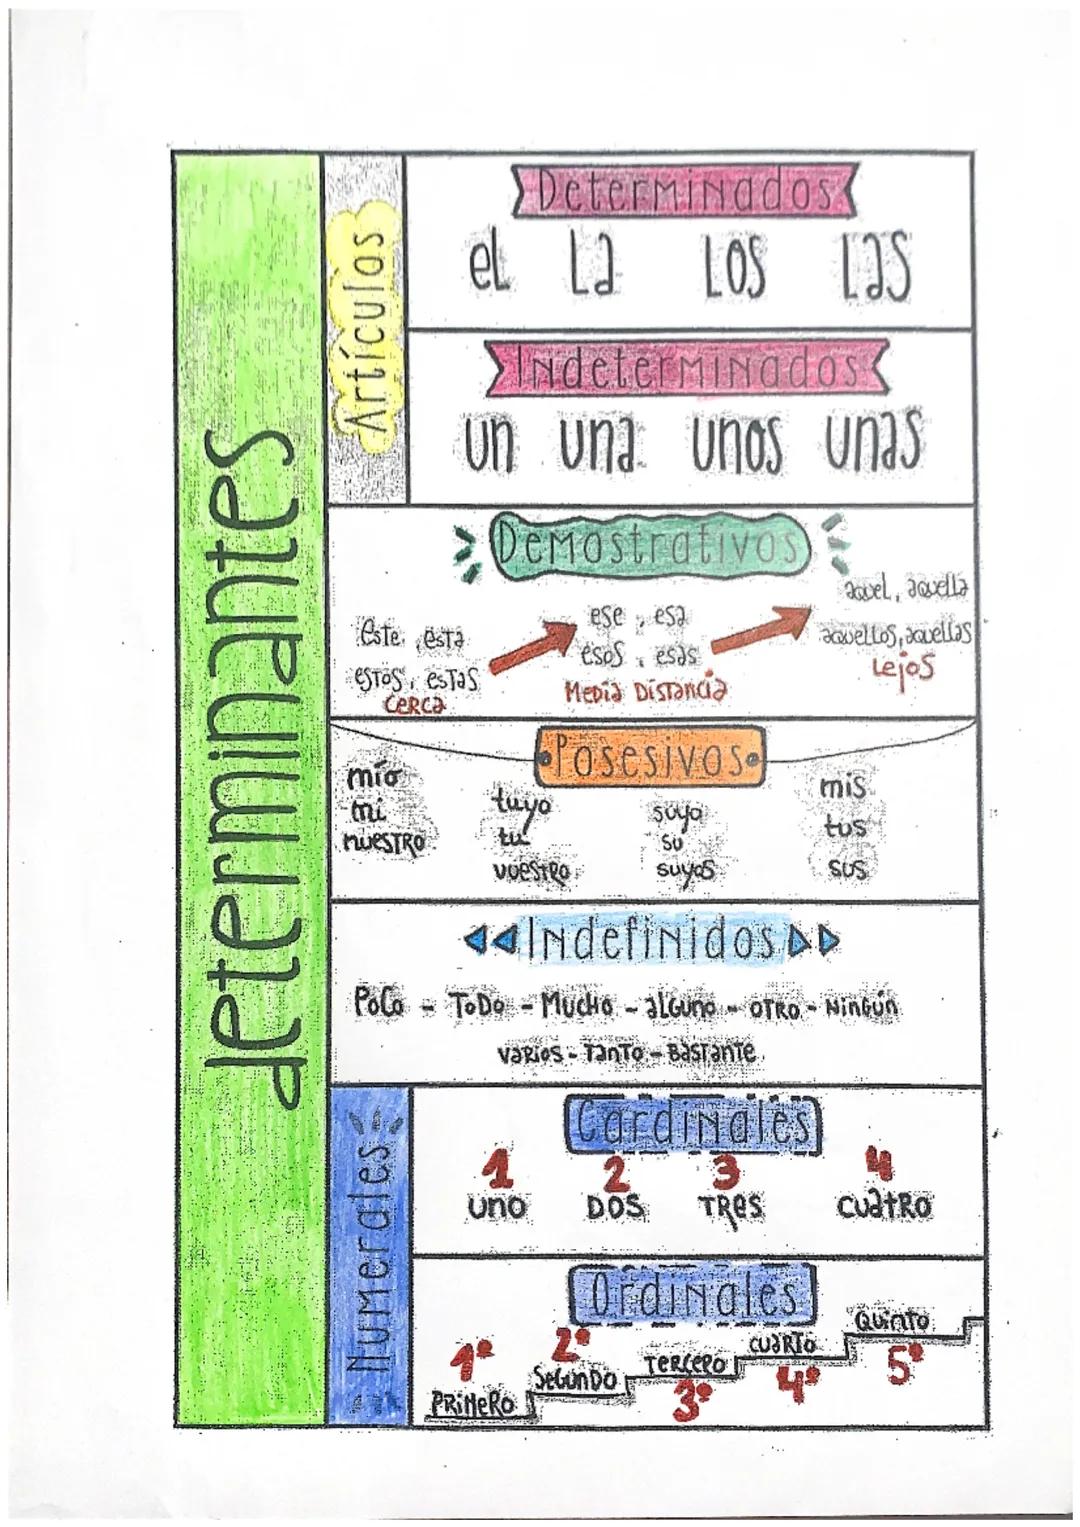 determinantes
Artículos
Determinados
el La Los Las
Indeterminados
un una unos unas
Demostrativos
este, esta
estos, estas
cerca
ese, esa
esos, esas
Media Distancia
aquel, aquella
aquellos, aquellas
Lejos
Posesivos
mío
mi
nuestro
tuyo
tu
vuestro
suyo
su
suyos
mis
tus
sus
Indefinidos
Poco - Todo - Mucho - alguno - otro - Ningún
varios - Tanto - Bastante
Numerales
Cardinales
1 2 3 4
uno Dos Tres cuatro
Ordinales
1º 2º 3º 4º 5º
Primero Segundo Tercero cuarto Quinto